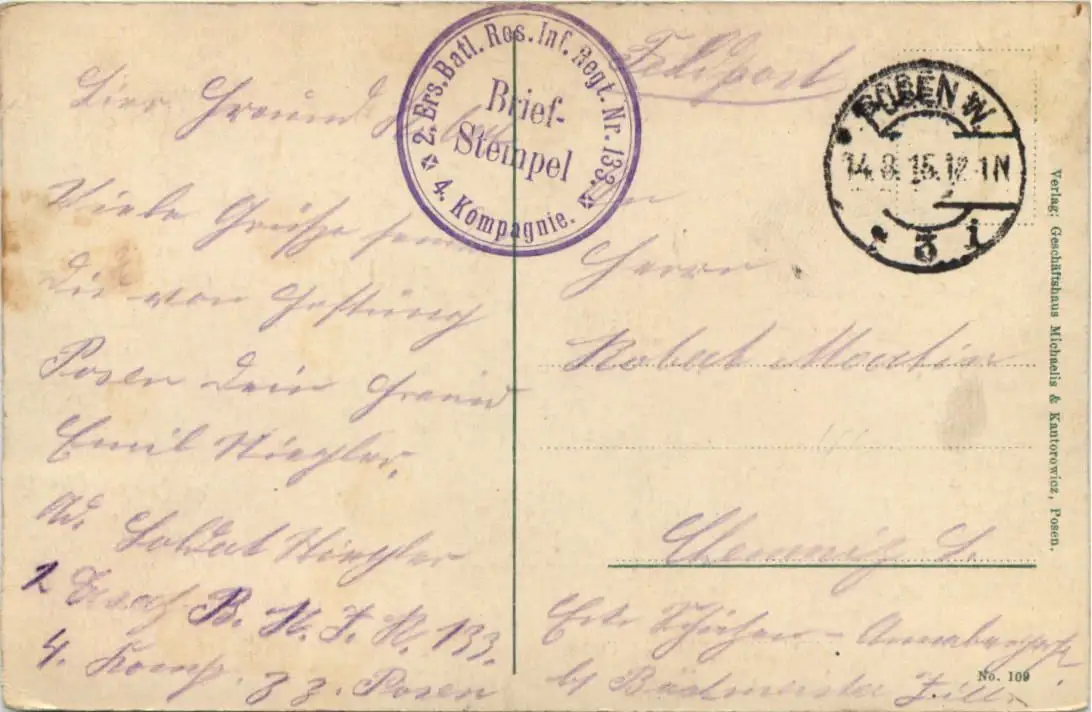 Feldpost
2. Ers. Batl. Res. Inf. Regt. Nr. 133.
Brief-
Stempel
4. Kompagnie.
POSEN W.
14.8.15.12-1N
* 3 i
Lieber Freund
Viele Grüße
Die von Festung
Posen Dein Freund
Emil
Ad. Soldat
2 Ersatz B. R. I. R. 133.
4. Komp. z z. Posen
Herrn
Robert Martin
Chemnitz S.
Ecke Annabergstr
bei
Verlag: Geschäftshaus Michaelis & Kantorowicz, Posen.
No. 109